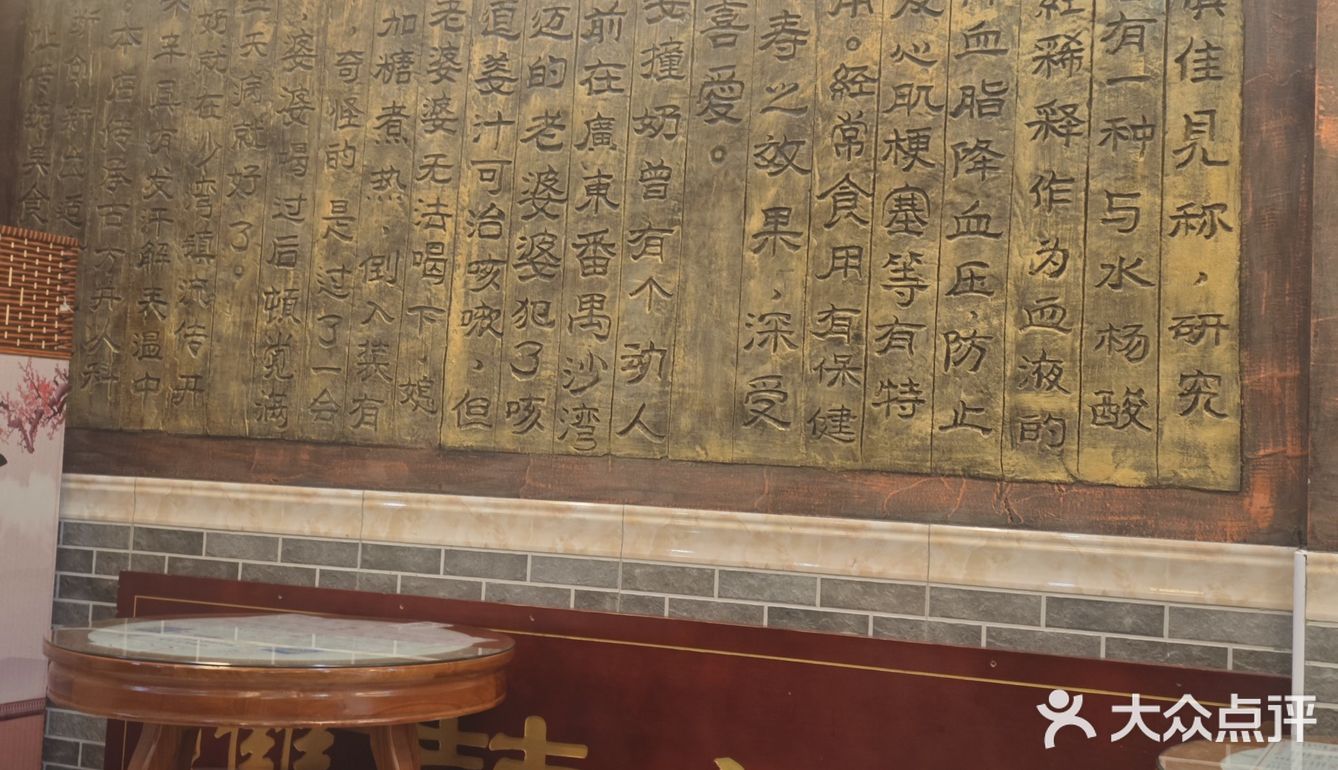 佳见称，研究
有一种与水杨酸
经稀释作为血液的
血脂降血压，防止
及心肌梗塞等有特
用。经常食用有保健
寿之效果，深受
喜愛。
撞奶曾有个动人
前在廣東番禺沙湾
迈的老婆婆犯了咳
道姜汁可治咳嗽，但
老婆婆无法喝下，媳
加糖煮热，倒入装有
，奇怪的是过了一会
婆婆喝过后頓觉满
天病就好了。
奶就在沙湾镇流传开
辛真有发汗解表温中
。本店传承古方并以科
美食
大众点评